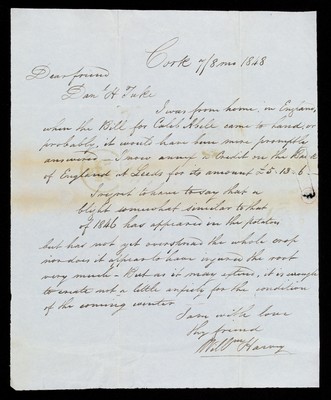 Cork 7/8 mo 1848
Dear friend
Danl H Tuke
I was from home, in England,
when the Bill for Caleb Hill came to hand, or
probably, it would have been more promptly
answered - I now annex a Credit on the Bank
of England at Leeds for its amount £5-13-6
I regret to have to say that a
blight somewhat similar to that
of 1846 has appeared on the potatoes
but has not yet overspread the whole crop
nor does it appear to have injured the root
very much - But as it may extend, it is enough
to create not a little anxiety for the condition
of the coming winter
I am with love
thy friend
Willm Harvey